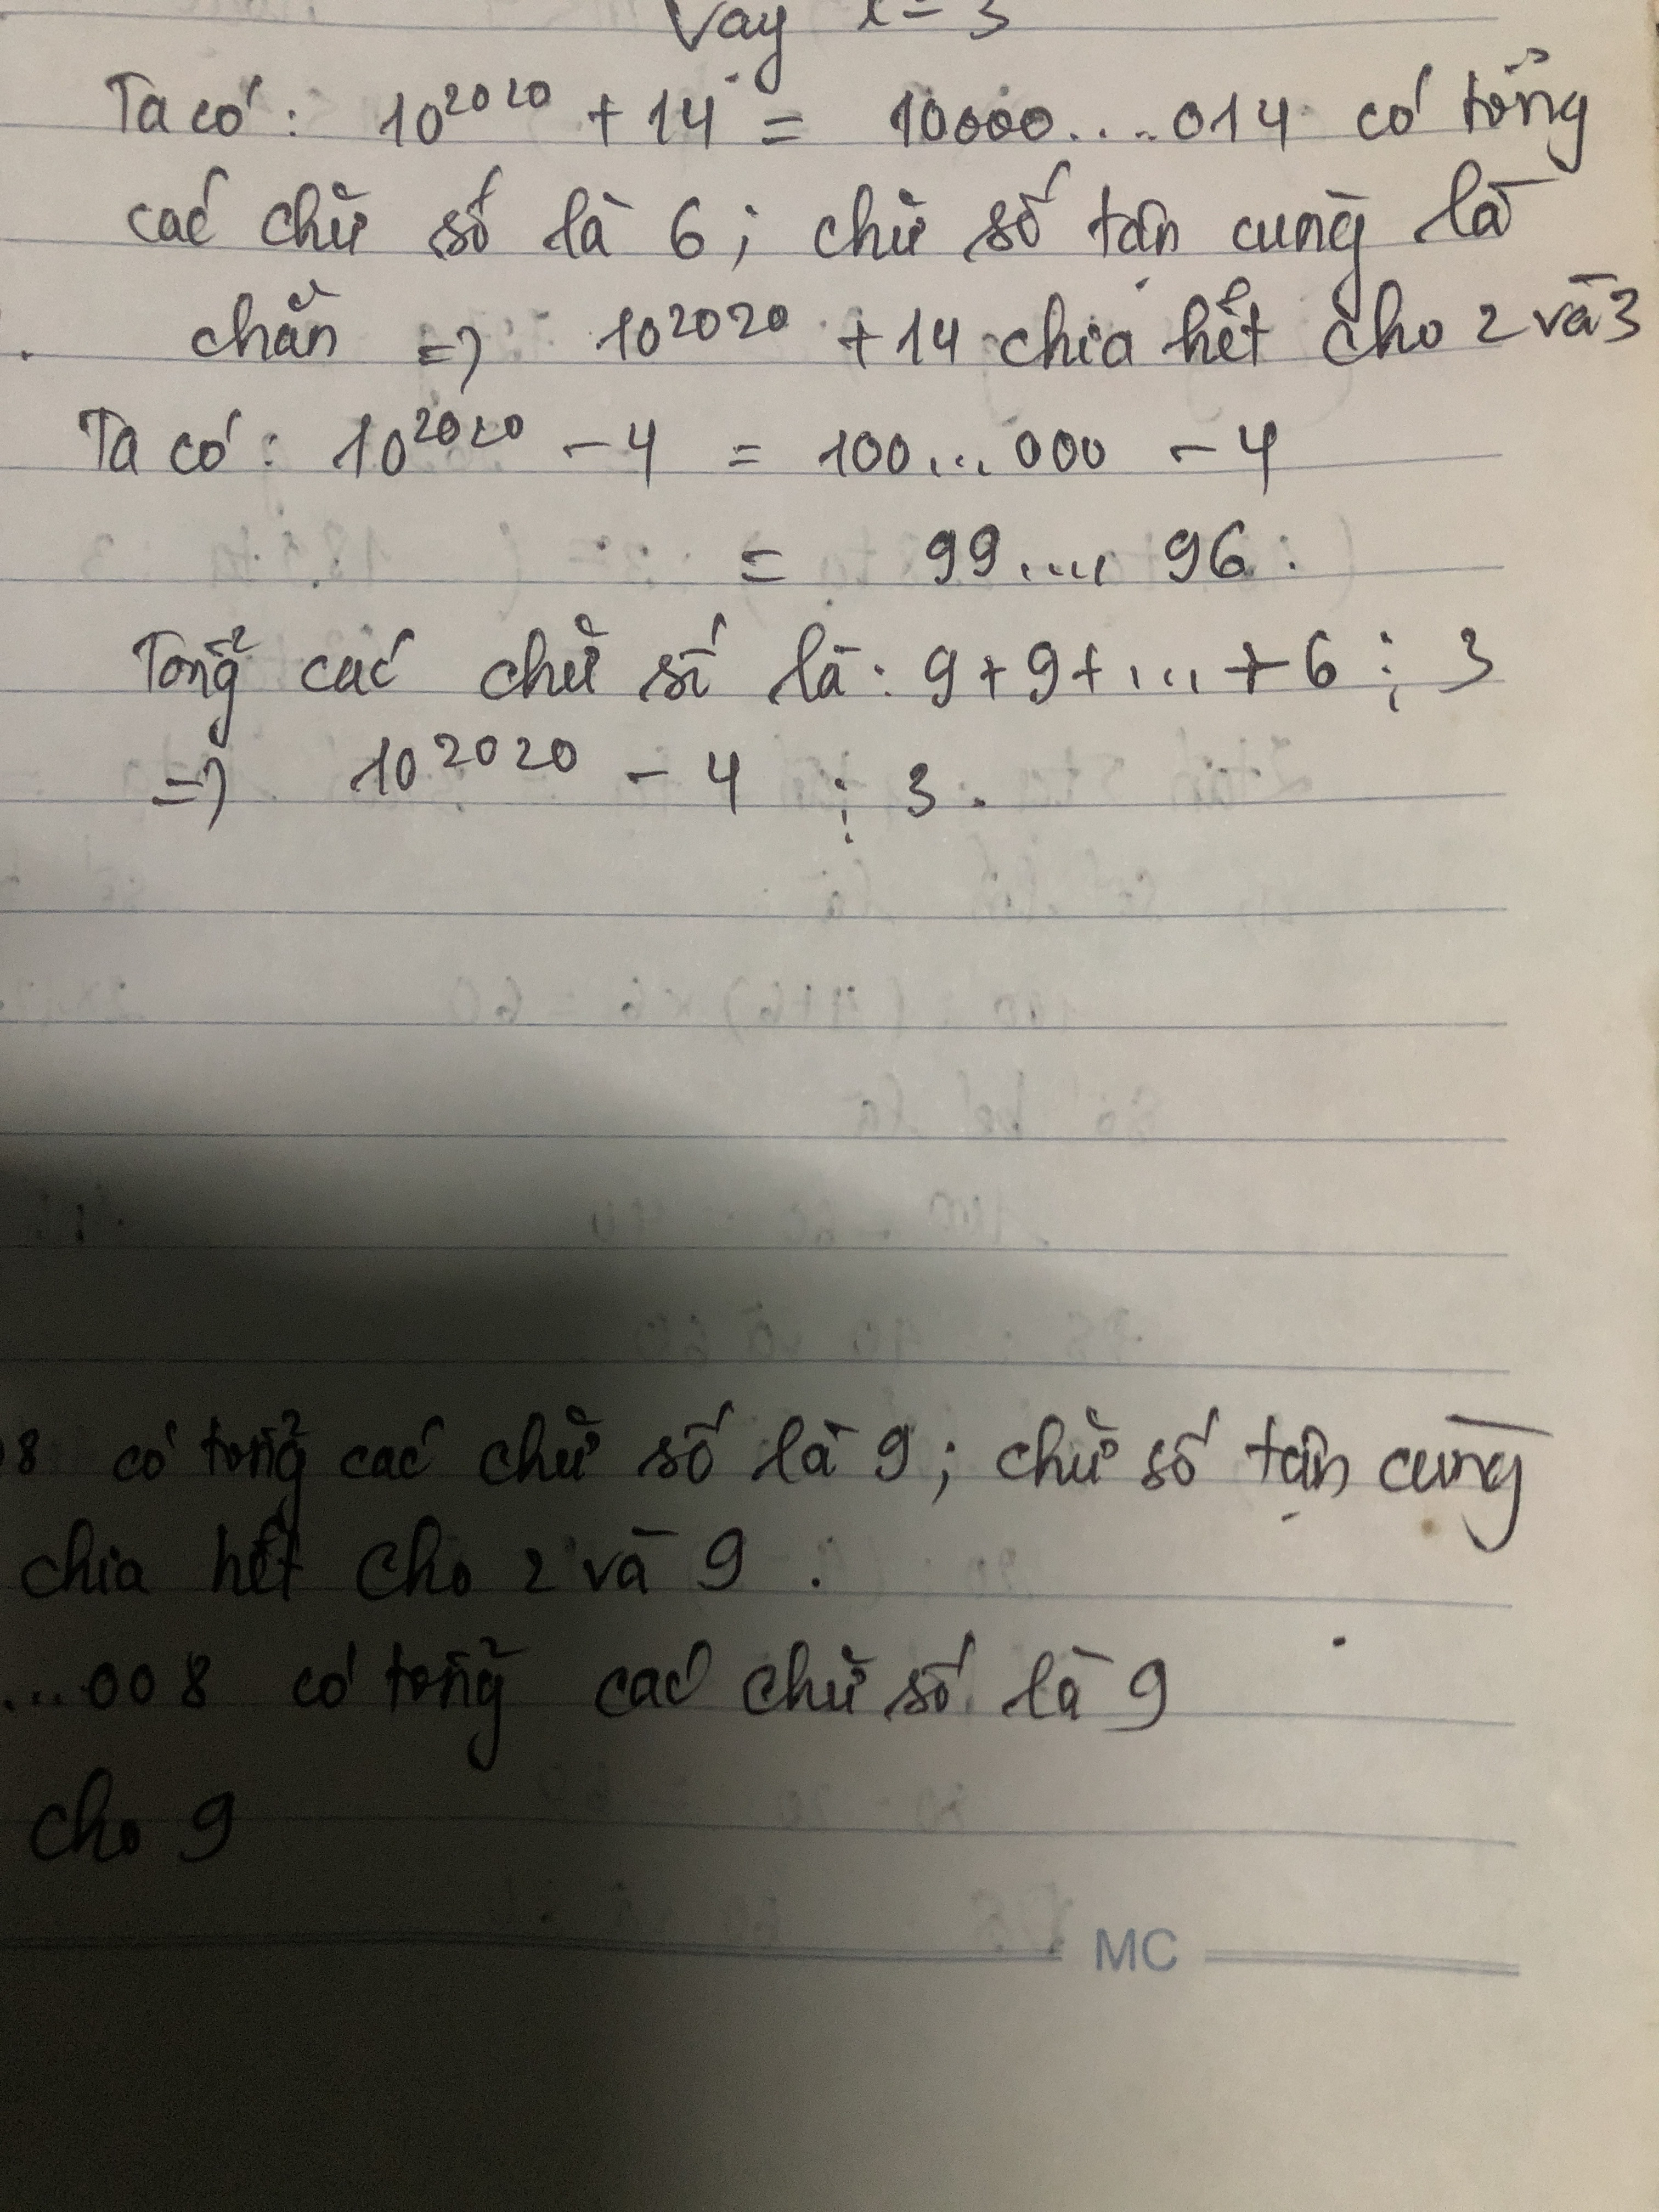 Vậy x = 3
Ta có: 10²⁰²⁰ + 14 = 10000....014 có tổng
các chữ số là 6; chữ số tận cùng là
chẵn => 10²⁰²⁰ + 14 chia hết cho 2 và 3
Ta có: 10²⁰²⁰ - 4 = 100...000 - 4
= 99.... 96.
Tổng các chữ số là: 9+9+...+6 ⋮ 3
=> 10²⁰²⁰ - 4 ⋮ 3.
8 có tổng các chữ số là 9; chữ số tận cùng
chia hết cho 2 và 9.
...008 có tổng các chữ số là 9
cho 9
MC